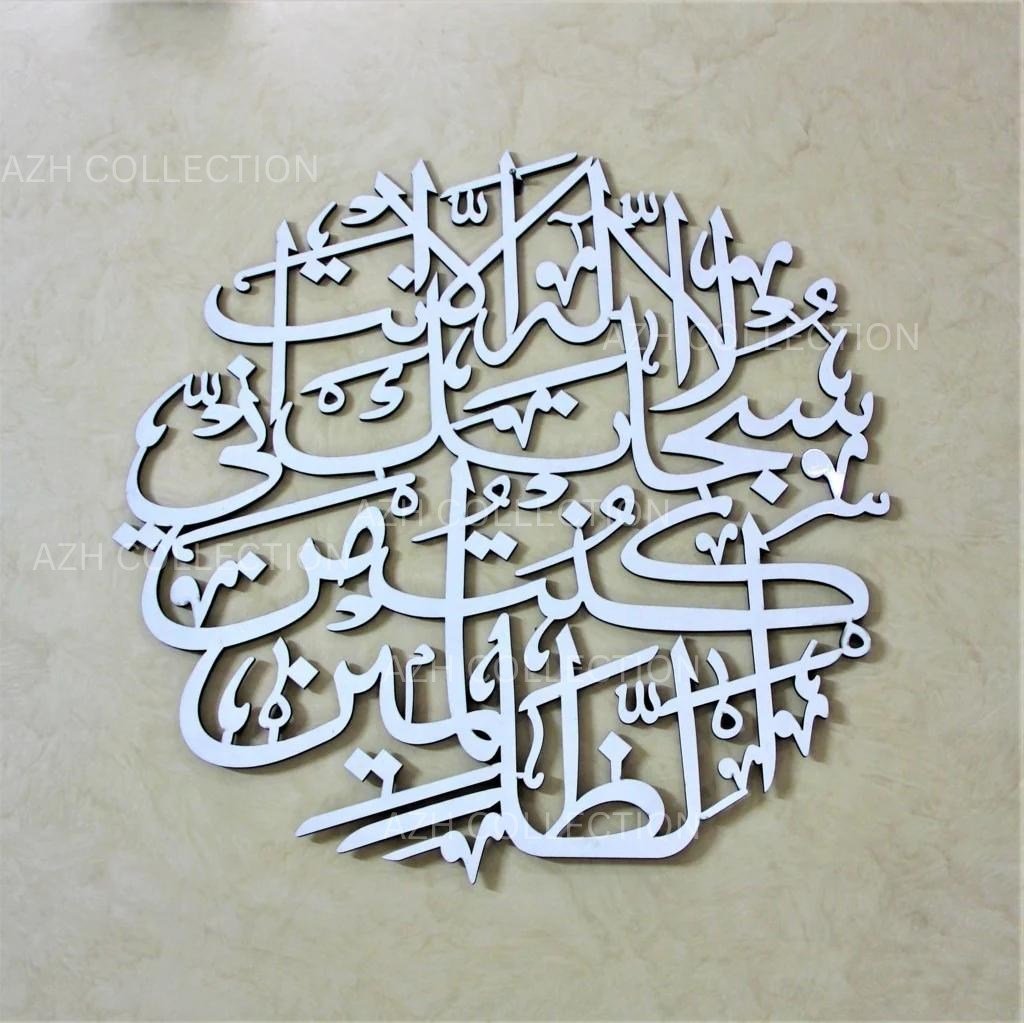 لا إله إلا أنت
سبحانك إني
كنت من
الظالمين
AZH COLLECTION
AZH COLLECTION
AZH COLLECTION
AZH COLLECTION
AZH COLLECTION
AZH COLLECTION